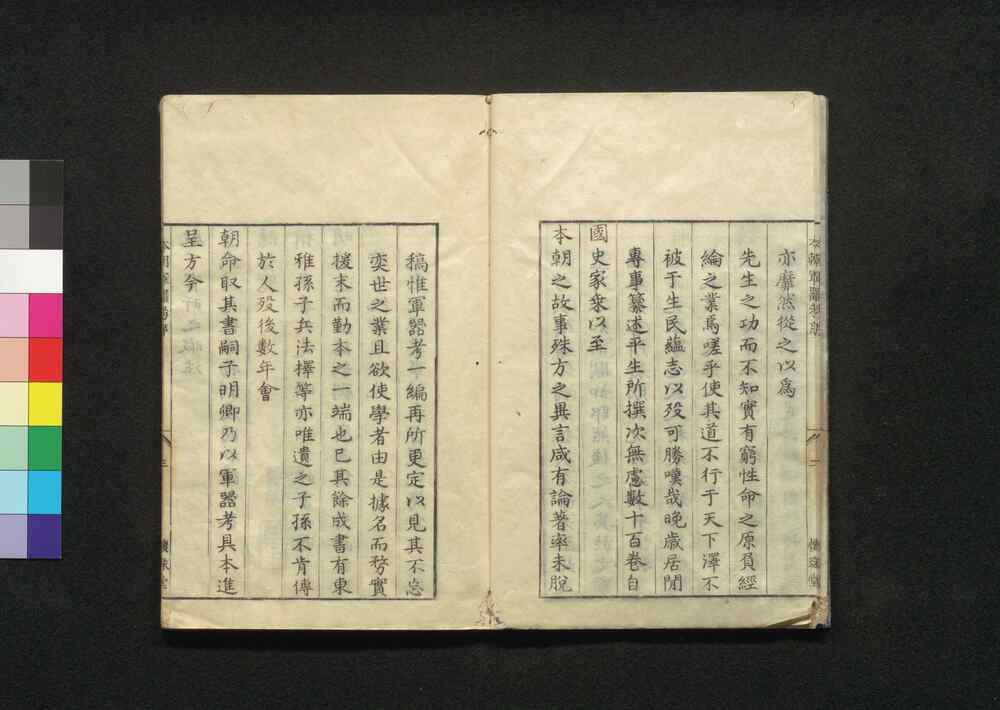 亦靡然從之以爲
先生之功而不知實有窮性命之原負經
綸之業焉嗟乎使其道不行于天下澤不
被于生民蘊志以歿可勝嘆哉晚歲居閒
專事纂述平生所撰次無慮數十百卷自
國史家乘以至
本朝之故事殊方之異言咸有論著率未脫
稿惟軍器考一編再所更定以見其不忘
奕世之業且欲使學者由是據名而務實
援末而勤本之一端也已其餘成書有東
雅孫子兵法擇等亦唯遺之子孫不肯傳
於人歿後數年會
朝命取其書嗣子明卿乃以軍器考具本進
呈方今